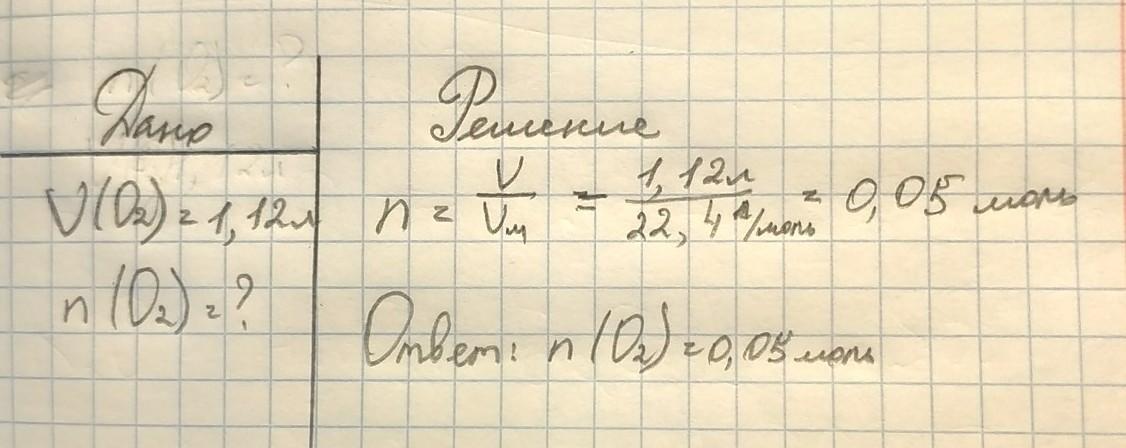 Дано
V(O₂) = 1,12л
n(O₂) = ?
Решение
n = V/Vм = 1,12л/22,4 л/моль = 0,05 моль
Ответ: n(O₂) = 0,05 моль